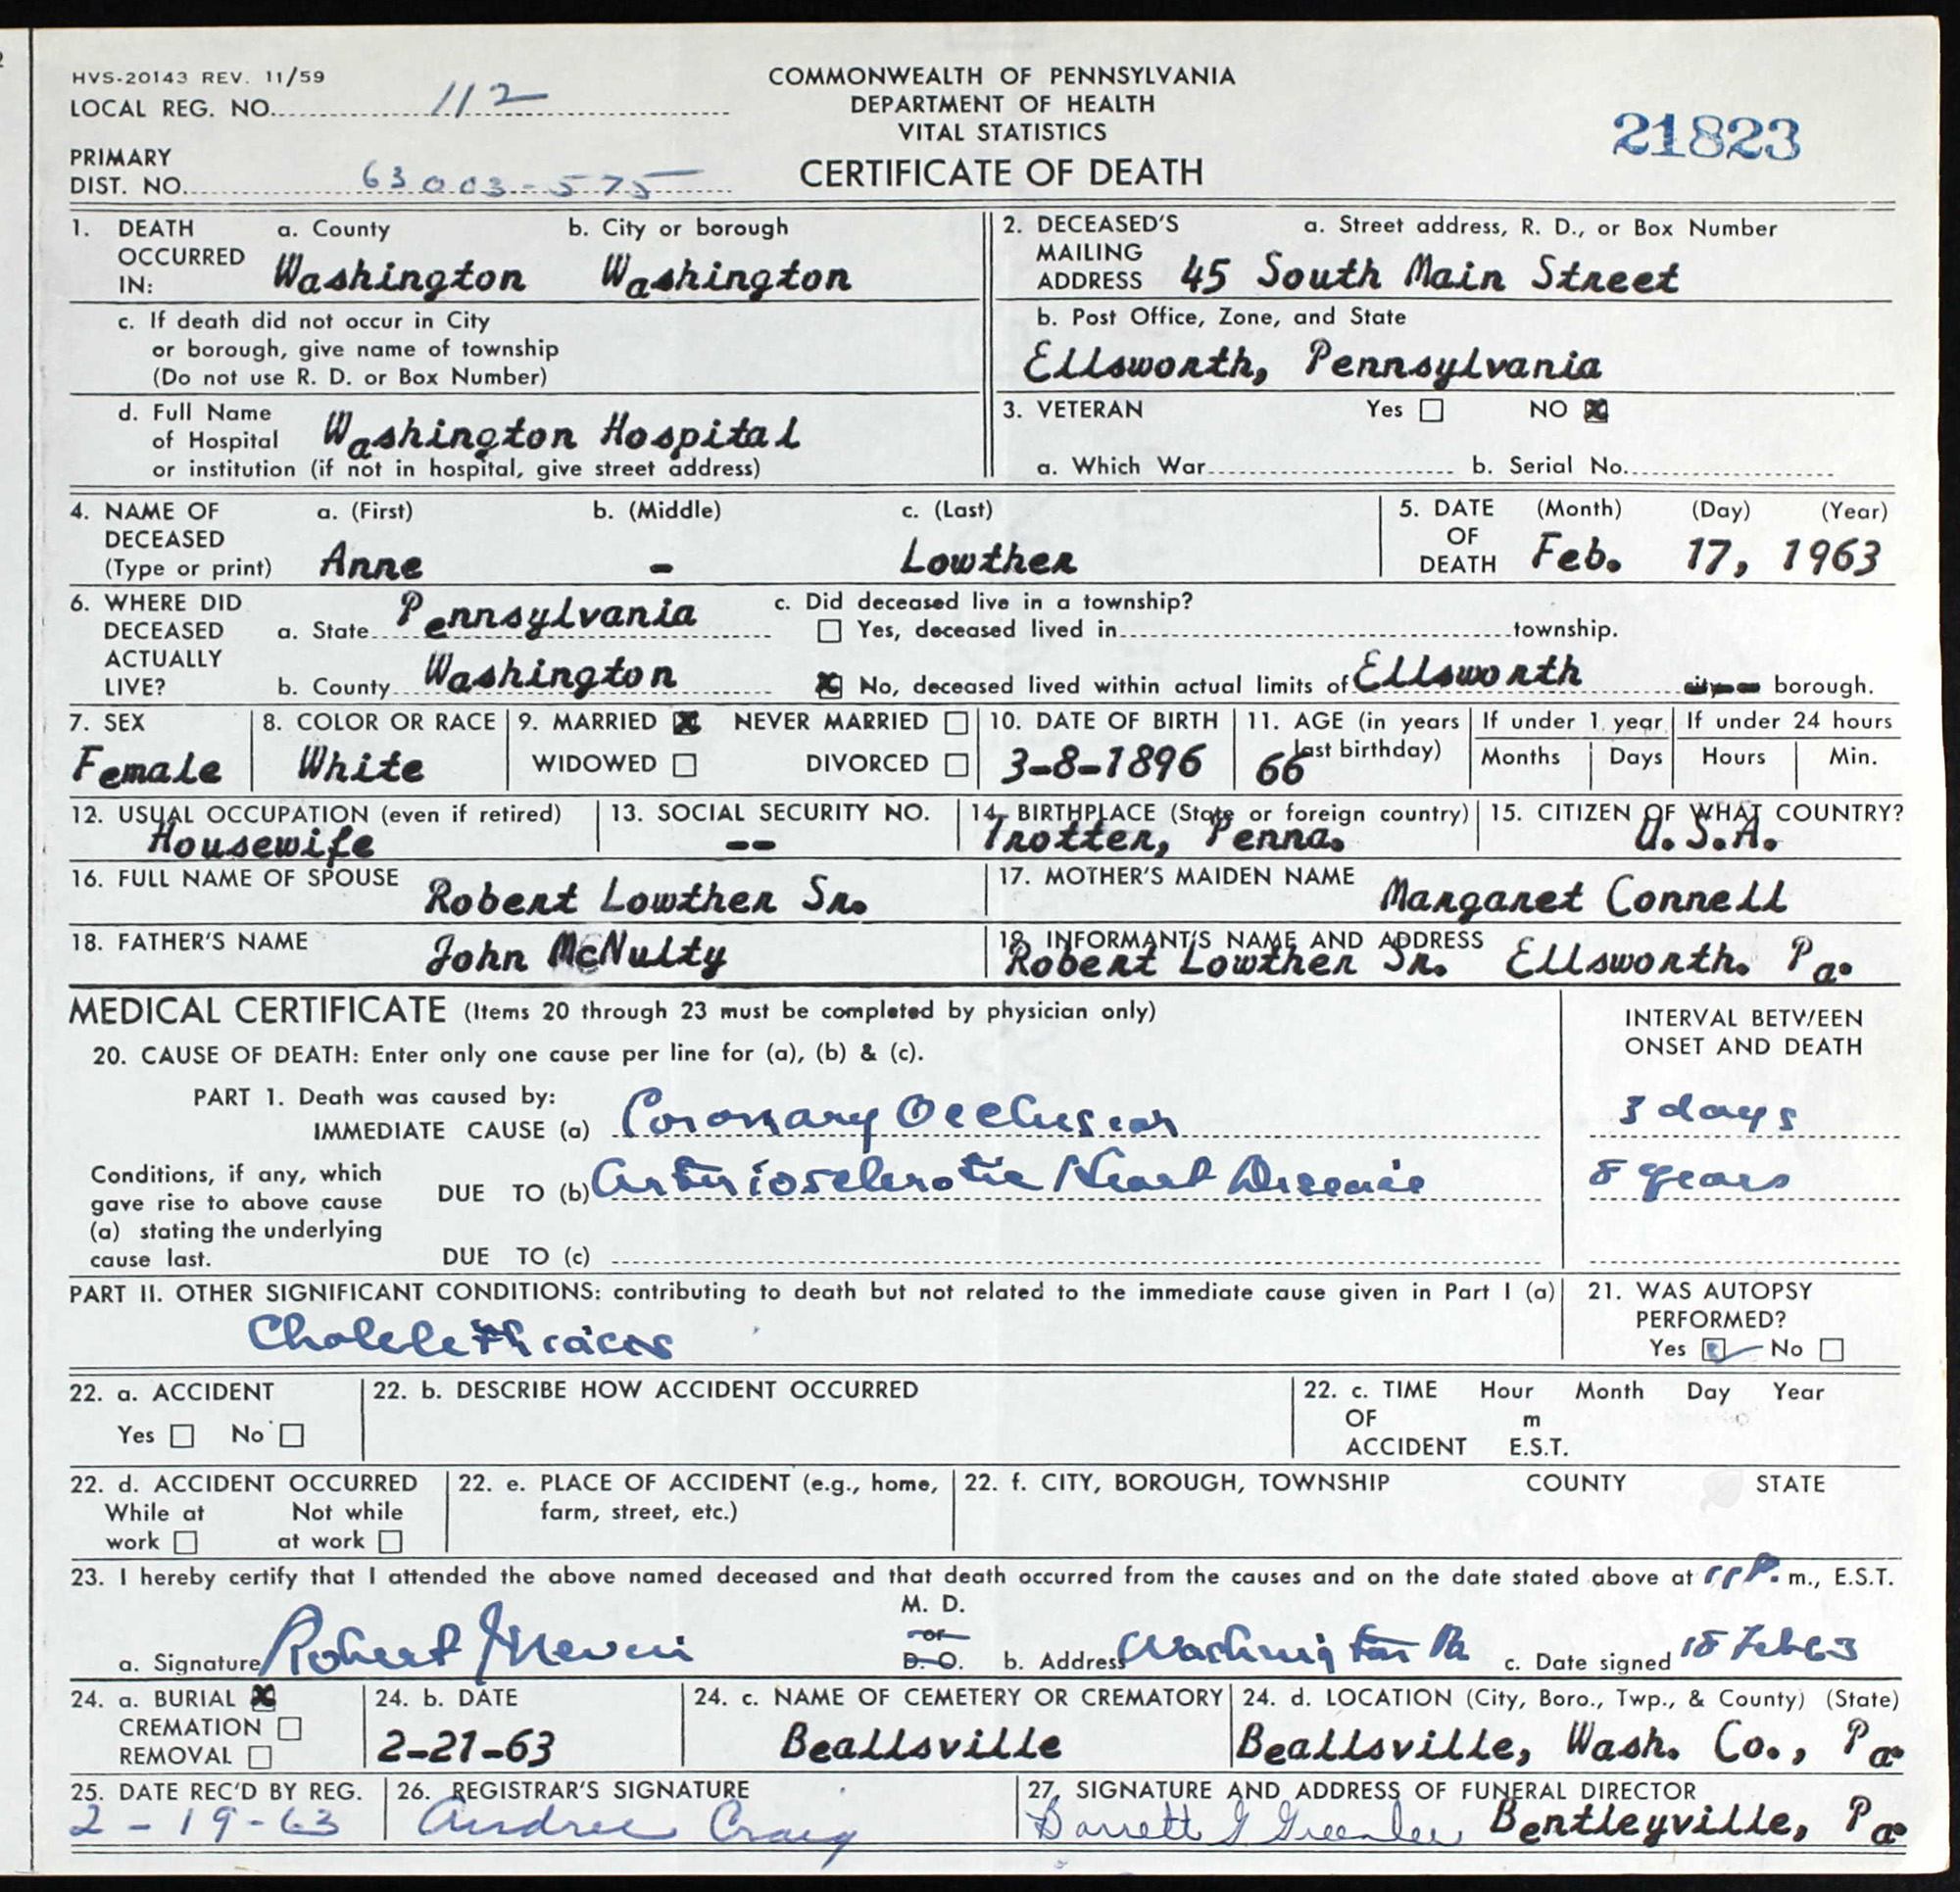 HVS-20143 REV. 11/59
LOCAL REG. NO. 112
COMMONWEALTH OF PENNSYLVANIA
DEPARTMENT OF HEALTH
VITAL STATISTICS
CERTIFICATE OF DEATH
21823
PRIMARY
DIST. NO. 63003-575
1. DEATH OCCURRED IN: a. County Washington b. City or borough Washington
c. If death did not occur in City
or borough, give name of township
(Do not use R. D. or Box Number)
d. Full Name
of Hospital Washington Hospital
or institution (if not in hospital, give street address)
2. DECEASED'S MAILING ADDRESS a. Street address, R. D., or Box Number
45 South Main Street
b. Post Office, Zone, and State
Ellsworth, Pennsylvania
3. VETERAN Yes ☐ NO ☒
a. Which War b. Serial No.
4. NAME OF DECEASED (Type or print) a. (First) b. (Middle) c. (Last)
Anne - Lowther
5. DATE OF DEATH (Month) (Day) (Year)
Feb. 17, 1963
6. WHERE DID DECEASED ACTUALLY LIVE? a. State Pennsylvania
b. County Washington
c. Did deceased live in a township?
☐ Yes, deceased lived in township.
☒ No, deceased lived within actual limits of Ellsworth borough.
7. SEX
Female
8. COLOR OR RACE
White
9. MARRIED ☒ NEVER MARRIED ☐
WIDOWED ☐ DIVORCED ☐
10. DATE OF BIRTH
3-8-1896
11. AGE (in years last birthday)
66
If under 1 year
Months Days
If under 24 hours
Hours Min.
12. USUAL OCCUPATION (even if retired)
Housewife
13. SOCIAL SECURITY NO.
--
14. BIRTHPLACE (State or foreign country)
Trotter, Penna.
15. CITIZEN OF WHAT COUNTRY?
U.S.A.
16. FULL NAME OF SPOUSE Robert Lowther Sr.
17. MOTHER'S MAIDEN NAME Margaret Connell
18. FATHER'S NAME John McNulty
19. INFORMANT'S NAME AND ADDRESS
Robert Lowther Sr. Ellsworth. Pa.
MEDICAL CERTIFICATE (Items 20 through 23 must be completed by physician only)
INTERVAL BETWEEN
ONSET AND DEATH
20. CAUSE OF DEATH: Enter only one cause per line for (a), (b) & (c).
PART 1. Death was caused by:
IMMEDIATE CAUSE (a) Coronary Occlusion 3 days
Conditions, if any, which
gave rise to above cause
(a) stating the underlying
cause last.
DUE TO (b) Arteriosclerotic Heart Disease 8 years
DUE TO (c)
PART II. OTHER SIGNIFICANT CONDITIONS: contributing to death but not related to the immediate cause given in Part I (a)
21. WAS AUTOPSY
PERFORMED?
Yes ☑ No ☐
22. a. ACCIDENT
Yes ☐ No ☐
22. b. DESCRIBE HOW ACCIDENT OCCURRED
22. c. TIME OF ACCIDENT Hour Month Day Year
m
E.S.T.
22. d. ACCIDENT OCCURRED
While at work ☐ Not while at work ☐
22. e. PLACE OF ACCIDENT (e.g., home,
farm, street, etc.)
22. f. CITY, BOROUGH, TOWNSHIP COUNTY STATE
23. I hereby certify that I attended the above named deceased and that death occurred from the causes and on the date stated above at P. m., E.S.T.
M. D.
or
D. O.
a. Signature Robert b. Address Washington Pa c. Date signed 18 Feb 63
24. a. BURIAL ☒
CREMATION ☐
REMOVAL ☐
24. b. DATE
2-21-63
24. c. NAME OF CEMETERY OR CREMATORY
Beallsville
24. d. LOCATION (City, Boro., Twp., & County) (State)
Beallsville, Wash. Co., Pa
25. DATE REC'D BY REG.
2-19-63
26. REGISTRAR'S SIGNATURE
Andree Craig
27. SIGNATURE AND ADDRESS OF FUNERAL DIRECTOR
Barrett G Greenlee Bentleyville, Pa